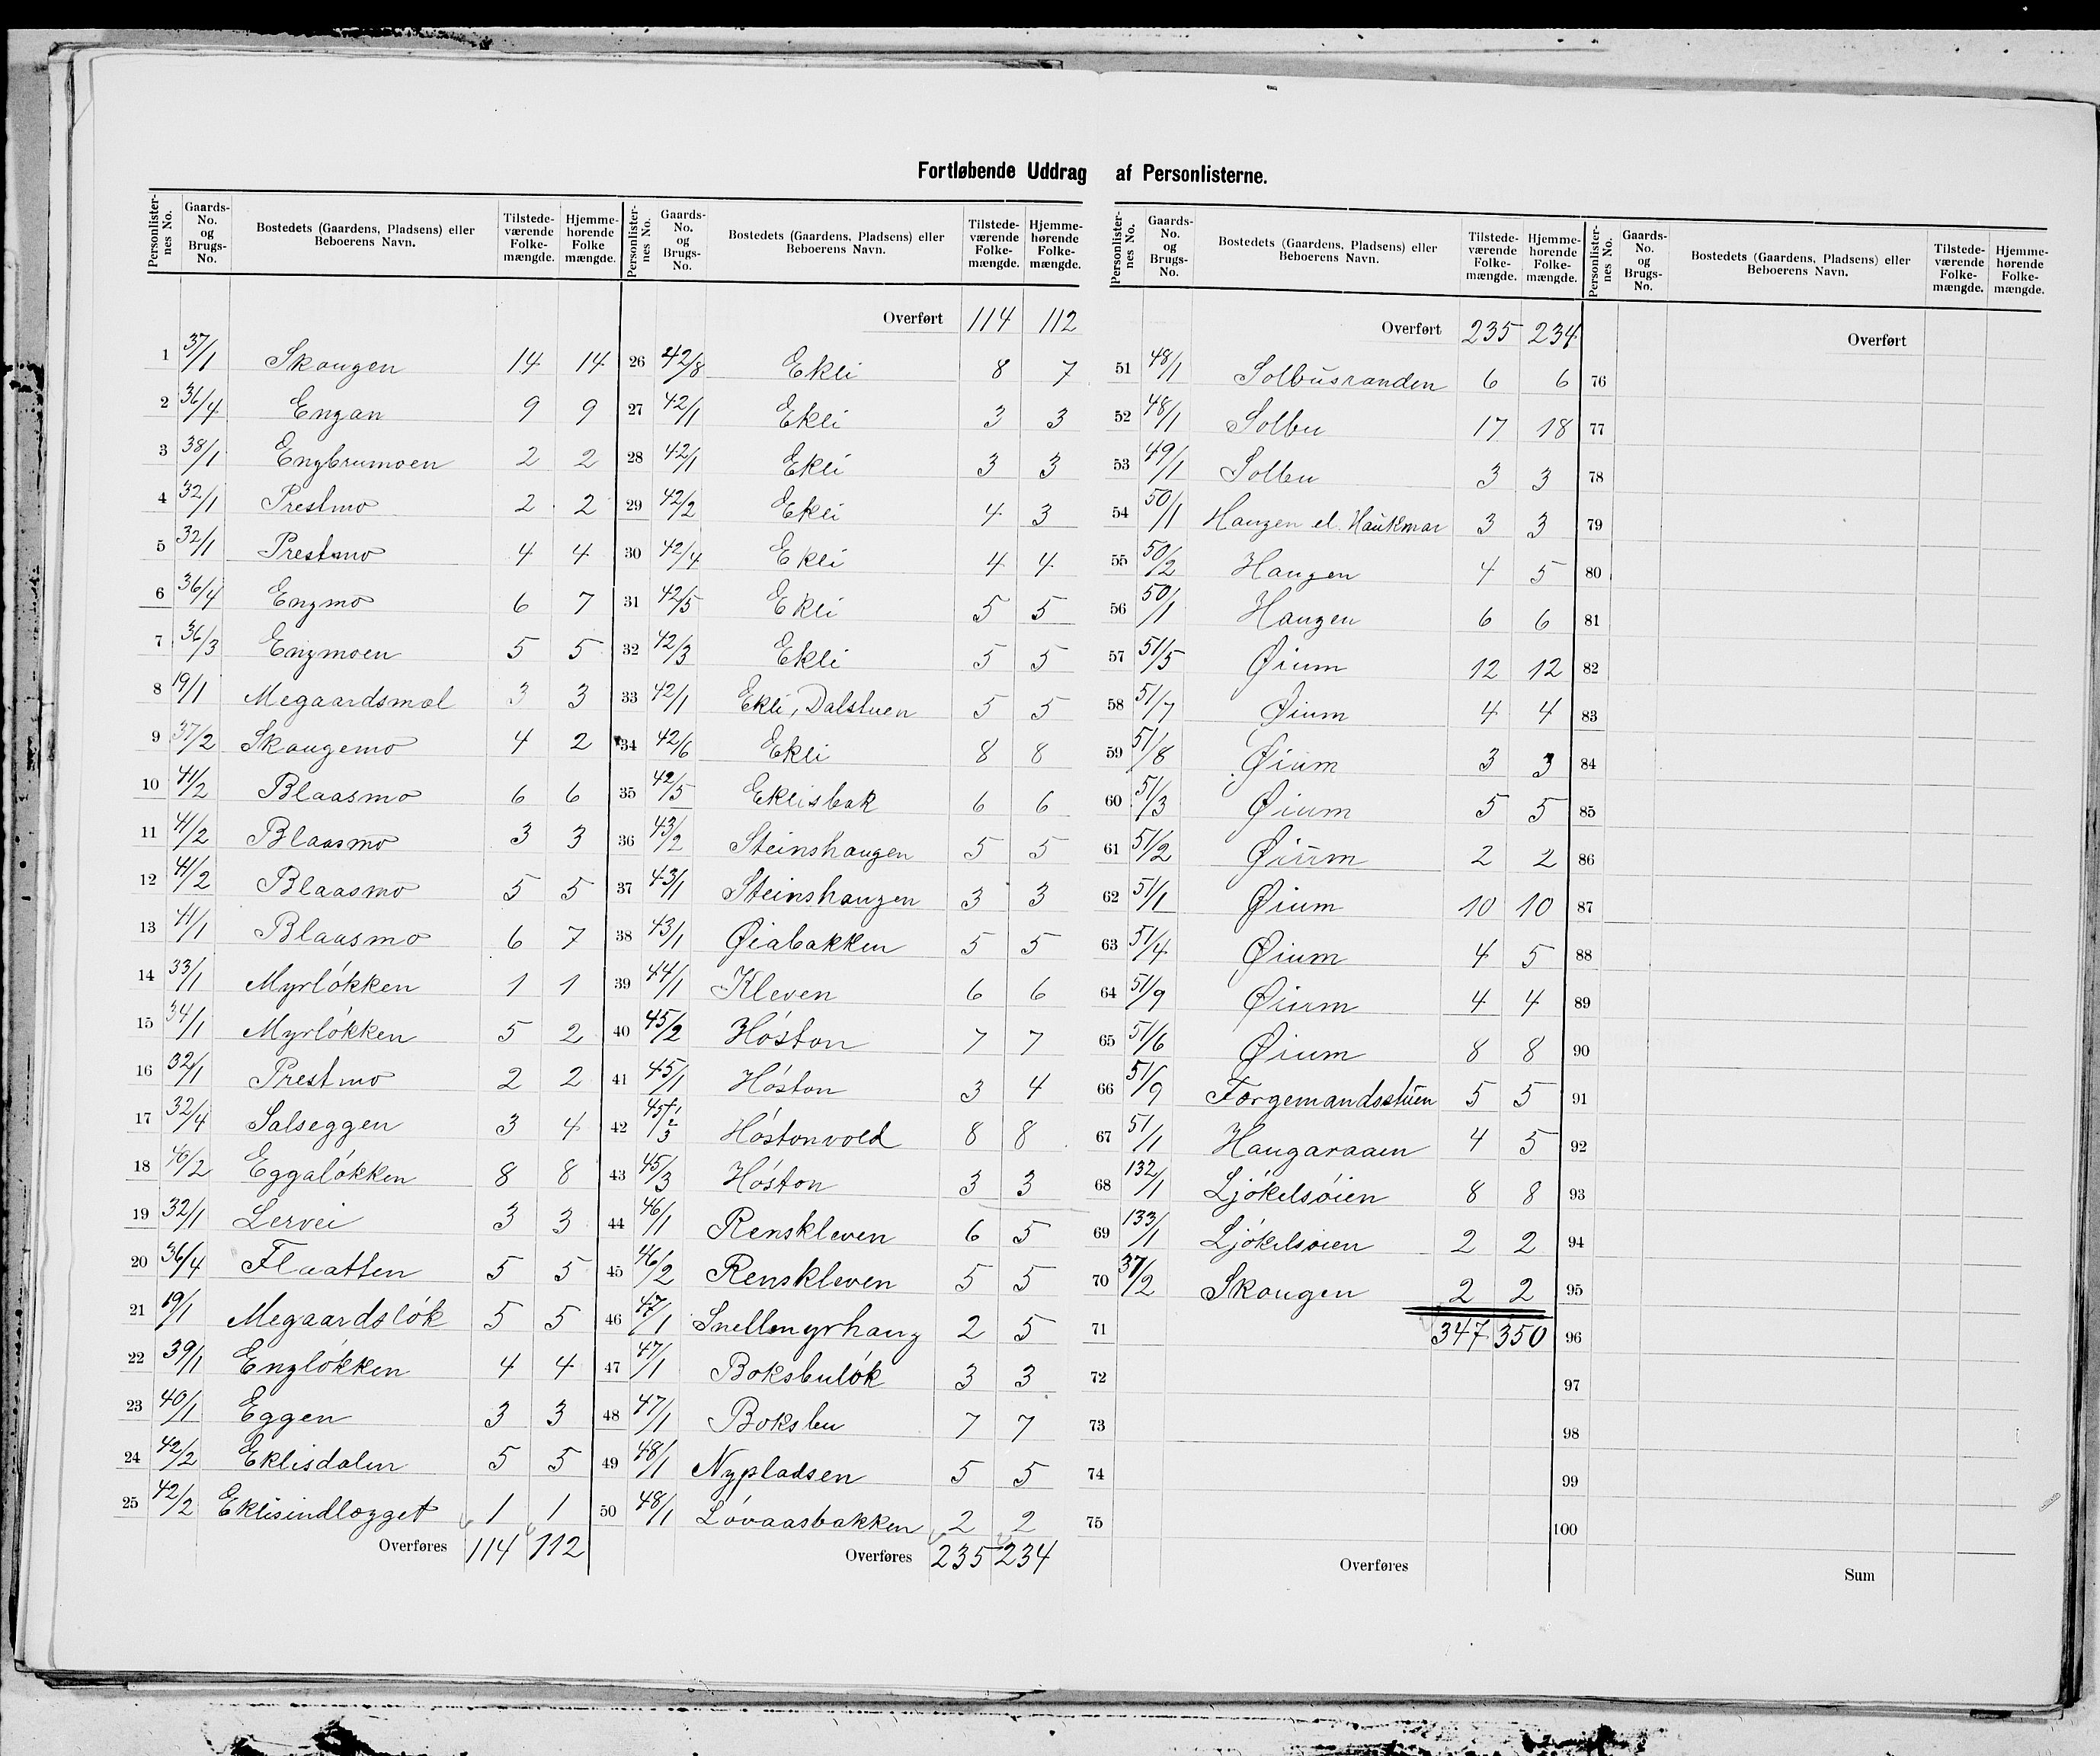 Fortløbende Uddrag af Personlisterne.
Personlisternes No. Gaards-No. og Brugs-No. Bostedets (Gaardens, Pladsens) eller Beboerens Navn. Tilstedeværende Folkemængde. Hjemmehørende Folkemængde.
1 37/1 Skougen 14 14
2 36/4 Engan 9 9
3 38/1 Engbrumoen 2 2
4 32/1 Prestmo 2 2
5 32/1 Prestmo 4 4
6 36/4 Engmo 6 7
7 36/3 Engmoen 5 5
8 19/1 Megaardsmæl 3 3
9 37/2 Skougemo 4 2
10 41/2 Blaasmo 6 6
11 41/2 Blaasmo 3 3
12 41/2 Blaasmo 5 5
13 41/1 Blaasmo 6 7
14 33/1 Myrlökken 1 1
15 34/1 Myrlökken 5 2
16 32/1 Prestmo 2 2
17 32/4 Salseggen 3 4
18 40/2 Eggalökken 8 8
19 32/1 Lervei 3 3
20 36/4 Flaatten 5 5
21 19/1 Megaardslök 5 5
22 39/1 Englökken 4 4
23 40/1 Eggen 3 3
24 42/2 Eklisdalen 5 5
25 42/2 Eklisindlægget 1 1
Overføres 114 112
Personlisternes No. Gaards-No. og Brugs-No. Bostedets (Gaardens, Pladsens) eller Beboerens Navn. Tilstedeværende Folkemængde. Hjemmehørende Folkemængde.
Overført 114 112
26 42/8 Ekli 8 7
27 42/1 Ekli 3 3
28 42/1 Ekli 3 3
29 42/2 Ekli 4 3
30 42/4 Ekli 4 4
31 42/5 Ekli 5 5
32 42/3 Ekli 5 5
33 42/1 Ekli, Dalstuen 5 5
34 42/6 Ekli 8 8
35 42/5 Eklisbak 6 6
36 43/2 Steinshaugen 5 5
37 43/1 Steinshaugen 3 3
38 43/1 Øiabakken 5 5
39 44/1 Kleven 6 6
40 45/2 Höston 7 7
41 45/1 Höston 3 4
42 45/3 Höstonvold 8 8
43 45/3 Höston 3 3
44 46/1 Renskleven 6 5
45 46/2 Renskleven 5 5
46 47/1 Snellmyrhaug 2 5
47 47/1 Boksbulök 3 3
48 47/1 Boksbu 7 7
49 48/1 Nypladsen 5 5
50 48/1 Lövaasbakken 2 2
Overføres 235 234
Personlisternes No. Gaards-No. og Brugs-No. Bostedets (Gaardens, Pladsens) eller Beboerens Navn. Tilstedeværende Folkemængde. Hjemmehørende Folkemængde.
Overført 235 234
51 48/1 Solbusranden 6 6
52 48/1 Solbu 17 18
53 49/1 Solbu 3 3
54 50/1 Haugen el. Haukmar 3 3
55 50/2 Haugen 4 5
56 50/1 Haugen 6 6
57 51/5 Øium 12 12
58 51/7 Øium 4 4
59 51/8 Øium 3 3
60 51/3 Øium 5 5
61 51/2 Øium 2 2
62 51/1 Øium 10 10
63 51/4 Øium 4 5
64 51/9 Øium 4 4
65 51/6 Øium 8 8
66 51/9 Forgemandsstuen 5 5
67 51/1 Haugaraaen 4 5
68 132/1 Ljökelsöien 8 8
69 133/1 Ljökelsöien 2 2
70 37/2 Skougen 2 2
71 347 350
72
73
74
75
Overføres
Personlisternes No. Gaards-No. og Brugs-No. Bostedets (Gaardens, Pladsens) eller Beboerens Navn. Tilstedeværende Folkemængde. Hjemmehørende Folkemængde.
Overført
76
77
78
79
80
81
82
83
84
85
86
87
88
89
90
91
92
93
94
95
96
97
98
99
100
Sum